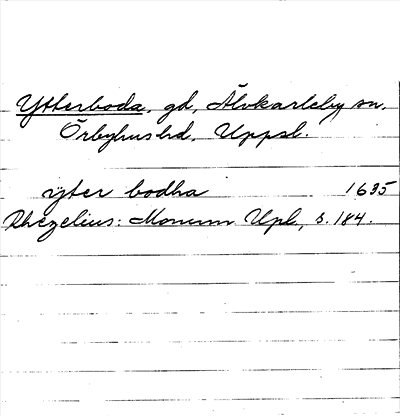 Ytterboda, gd, Älvkarleby sn.
Örbyhus hd, Uppsl.
ytter bodha 1635
Rhezelius: Monum Upl, s. 184.